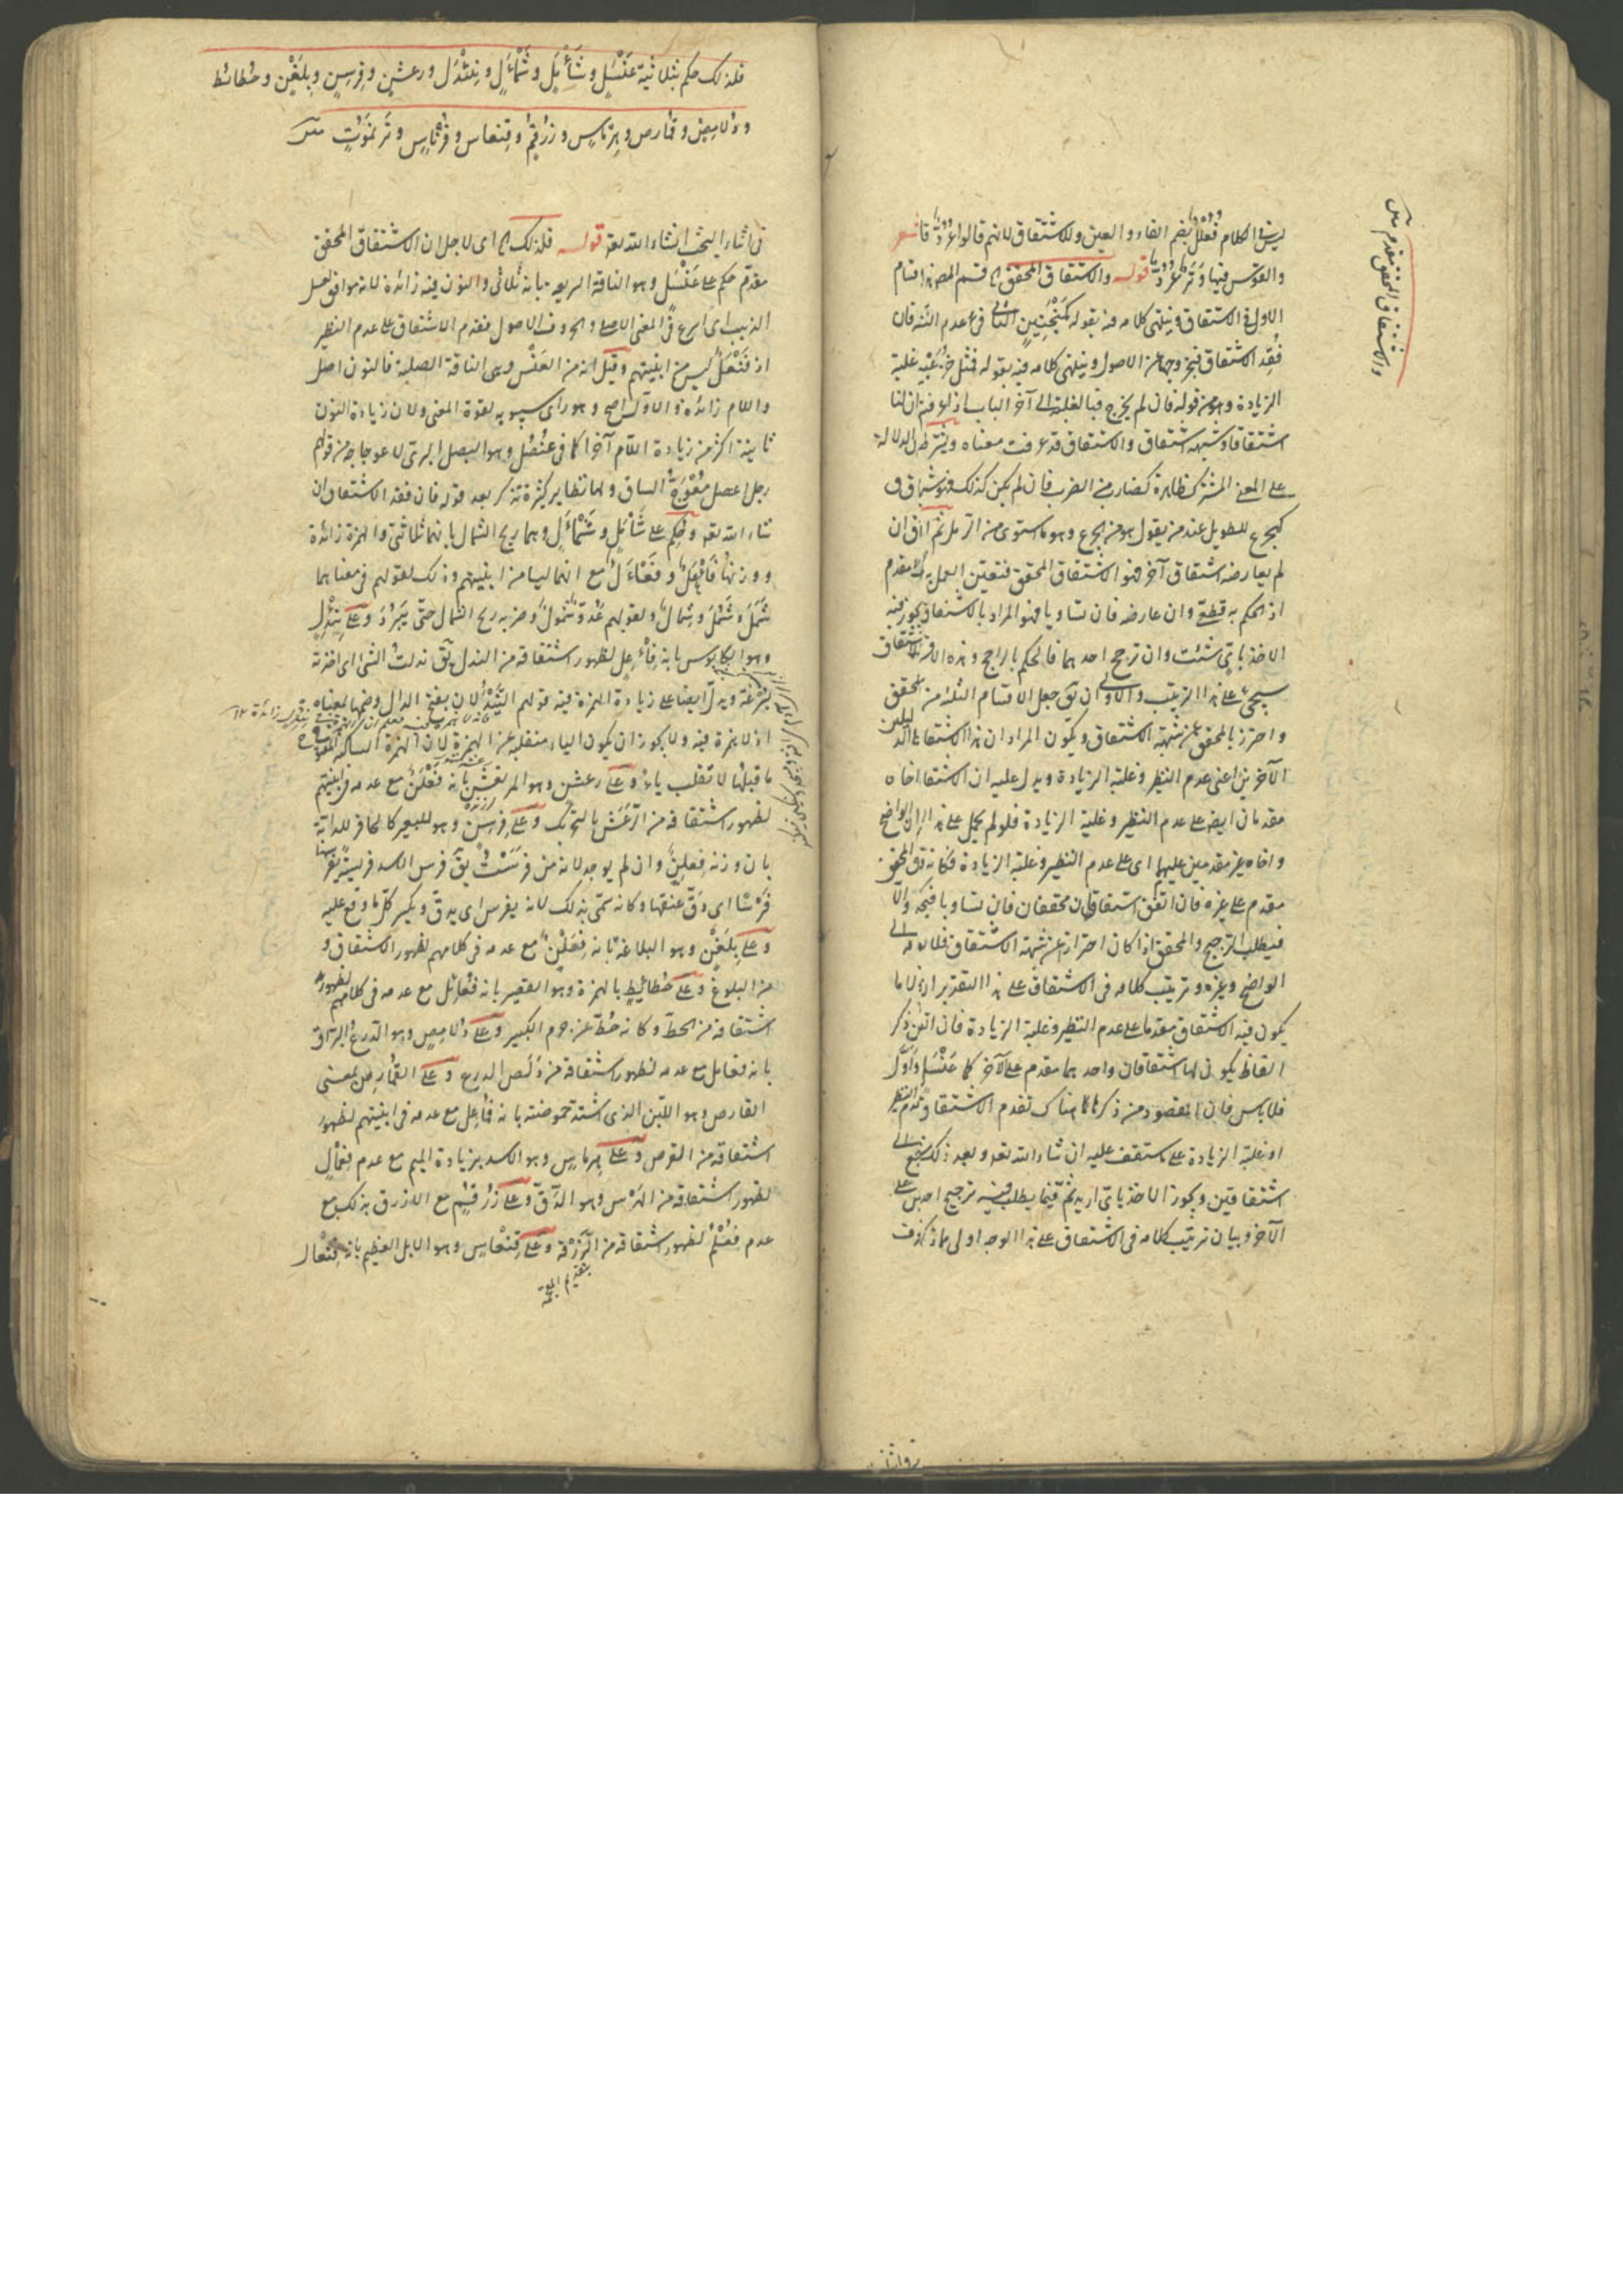 والاشتقاق المحقق مقدم متن
ليس في الكلام فُعُلُلّ بضم الفاء والعين وللاشتقاق لانهم قالوا عُرُدٌّ قال شعر
والقوس فيها وَتَرٌ عُرُدٌّ قوله والاشتقاق المحقق الخ قسم المص هذا اقسام
الاول في الاشتقاق وينتهى كلامه فيه بقوله كمنجنين الثانى فى عدم النظير فان
فُقِد الاشتقاق فبخروجها عن الاصول وينتهى كلامه فيه بقوله فمثل غلبة
الزيادة وهو من قوله فان لم يخرج فبالغلبة الى آخر الباب اذا عرفت ان لنا
اشتقاقا وشبهة اشتقاق والاشتقاق قد عرفت معناه ويشترط الدلالة
على المعنى المشترك ظاهرة كضارب من الضرب فان لم يكن كذلك فهو شبه اشتقاق
كهجرع للطويل عند من يقول هو من الجرع وهو ما استوى من الرمل ثم اتفق ان
لم يعارضه اشتقاق آخر فهو الاشتقاق المحقق فتعين العمل به مقدم
اذ الحكم به قطعى وان عارضه فان تساويا فهو المراد بالاشتقاق يجوز فيه
الاخذ بايّ شئت وان ترجح احدهما فالحكم بالراجح وهذه الاقسام الاشتقاق
سيجئ على هذا الترتيب والاولى ان يق جعل الاقسام الثلثة من المحقق
واحترز بالمحقق عن شبهة الاشتقاق ويكون المراد ان هذا الاشتقاق الدليلين
الآخرين اعنى عدم النظير وغلبة الزيادة ويدل عليه ان الاشتقاق اخاه
مقدمان ايض على عدم النظير وغلبة الزيادة فلو لم يحمل على هذا الواضح
واخاه غير مقدمين عليهما اى على عدم النظير وغلبة الزيادة فكانه قال المحقق
مقدم على غيره فان اتفق اشتقاقان محققان فان تساويا فبكه والا
فيطلب الترجيح والمحقق اذا كان احترازا عن شبهة الاشتقاق فلا
الواضح وغيره وترتيب كلامه فى الاشتقاق على هذا التقدير انه لما
يكون فيه الاشتقاق مقدما على عدم النظير وغلبة الزيادة فان اتفق ذكر
الفاظ يكون لها اشتقاقان واحدهما مقدم على الآخر كما عَنْسَل واوّل
فلا باس فان المقصود من ذكرها هناك تقدم الاشتقاق وعدم النظير
او غلبة الزيادة على ما ستقف عليه ان شاء الله تعه وبعد ذلك رجع الى
اشتقاقين ويجوز الاخذ بايّ اريد ثمّ فيما يطلب فيه ترجيح احدهما على
الآخر وبيان ترتيب كلامه فى الاشتقاق على هذا الوجه اولى مما ذكرت
فلذلك حكم بثلاثية عَنْسَلٍ وشَأْمَلٍ وشَمْأَلٍ ونِئْدِل ورعشنٍ وفِرسِنٍ وبِلَغْنٍ وحُطائط
ودُلامِصٍ وقمارص وهِرْماسٍ وزُرْقُمٍ وقِنعاس وفِرْناسٍ وتَرنموتٍ متن
فى اثناء البحث انشاء الله تعه قوله فلذلك الخ اى لاجل ان الاشتقاق المحقق
مقدّم حكم على عَنْسَل وهو الناقة السريعة بانه ثلاثى والنون فيه زائدة لانه موافق لعسل
الذيب اى اسرع فى المعنى الاصلى والحروف الاصول فقدم الاشتقاق على عدم النظير
اذ فَنْعَلٌ ليس من ابنيتهم وقيل انه من العَنْس وهى الناقة الصلبة فالنون اصل
واللام زائدة والاول اصح وهو راى سيبويه لقوة المعنى ولان زيادة النون
ثانية اكثر من زيادة اللام آخرا كما فى عُنصُل وهو البصل البرى لاعوجاجه من قولهم
رجل اعصل مُعْوَجُّ الساق ولها نظاير كثيرة تذكر بعد قوله فان فقد الاشتقاق ان
شاء الله تعه وحكم على شَأْمَلٍ وشَمْأَلٍ وهما ريح الشمال بانهما ثلاثى والهمزة زائدة
ووزنهما فَأْعَلٌ وفَعْأَلٌ مع انهما ليسا من ابنيتهم وذلك لقولهم فى معناهما
شَمْلٌ وشَمَلٌ وشمال ولقولهم غَدِيرٌ مشمولٌ وضربه ريح الشمال حتّى يَبْرُدَ وعلى نِئْدِلٍ
وهو الكابوس بانه فِئْعِل لظهور اشتقاقه من الندل يق ندلت الشئ اى اخذته
بسرعة ويدل ايضا على زيادة الهمزة فيه قولهم النَّيْدُلان بفتح الدال وضمها بمعناه
اذ لا همزة فيه ولا يجوز ان يكون الياء منقلبة عن الهمزة لان الهمزة الساكنة المفتوح
ما قبلها لا تقلب ياء وعلى رعشن وهو المرتعش بانه فَعْلَنٌ مع عدمه فى ابنيتهم
لظهور اشتقاقه من الرَّعَش بالتحريك وعلى فِرْسِنٍ وهو للبعير كالحافر للدابة
بان وزنه فِعلِنٌ وان لم يوجد لانه من فرسَتْ يق فرس الاسد فريسته يفرسها
فَرْسًا اى دَقّ عنقها وكانه سمّى بذلك لانه يفرس اى يدق ويكسر كلّ ما وقع عليه
وعلى بِلَغْنٍ وهو البلاغة بانه فِعَلْنٌ مع عدمه فى كلامهم لظهور الاشتقاق و
من البلوغ وعلى حُطائِطٍ بالهمزة وهو القصير بانه فُعائل مع عدمه فى كلامهم لظهور
اشتقاقه من الحطّ وكانه حُطّ عن جرم الكبير وعلى دُلامِصٍ وهو الدرع البرّاق
بانه فعامل مع عدمه لظهور اشتقاقه من دَلَص الدرع وعلى القُمارِص بمعنى
القارص وهو اللبن الذى اشتدّ حموضته بانه فُماعِل مع عدمه فى ابنيتهم لظهور
اشتقاقه من القرص وعلى هِرماسٍ وهو الاسد بزيادة الميم مع عدم فِعْمالٍ
لظهور اشتقاقه من الهرس وهو الدقّ وعلى زُرْقُمٍ مع الازرق بذلك مع
عدم فُعْلُمٌ لظهور اشتقاقه من الزُّرْقة وعلى قِنْعاسٍ وهو الابل العظيم بانه فِنْعال